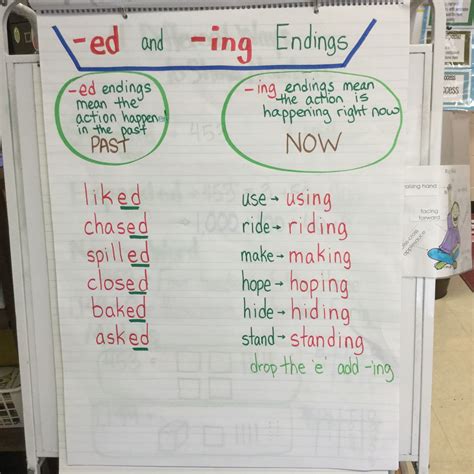 -ed and -ing Endings
-ed endings
mean the
action happen
in the past
PAST
-ing endings mean
the action is
happening right now
NOW
liked
chased
spilled
closed
baked
asked
use → using
ride → riding
make → making
hope → hoping
hide → hiding
stand → standing
drop the 'e' add -ing
raising hand
facing
forward